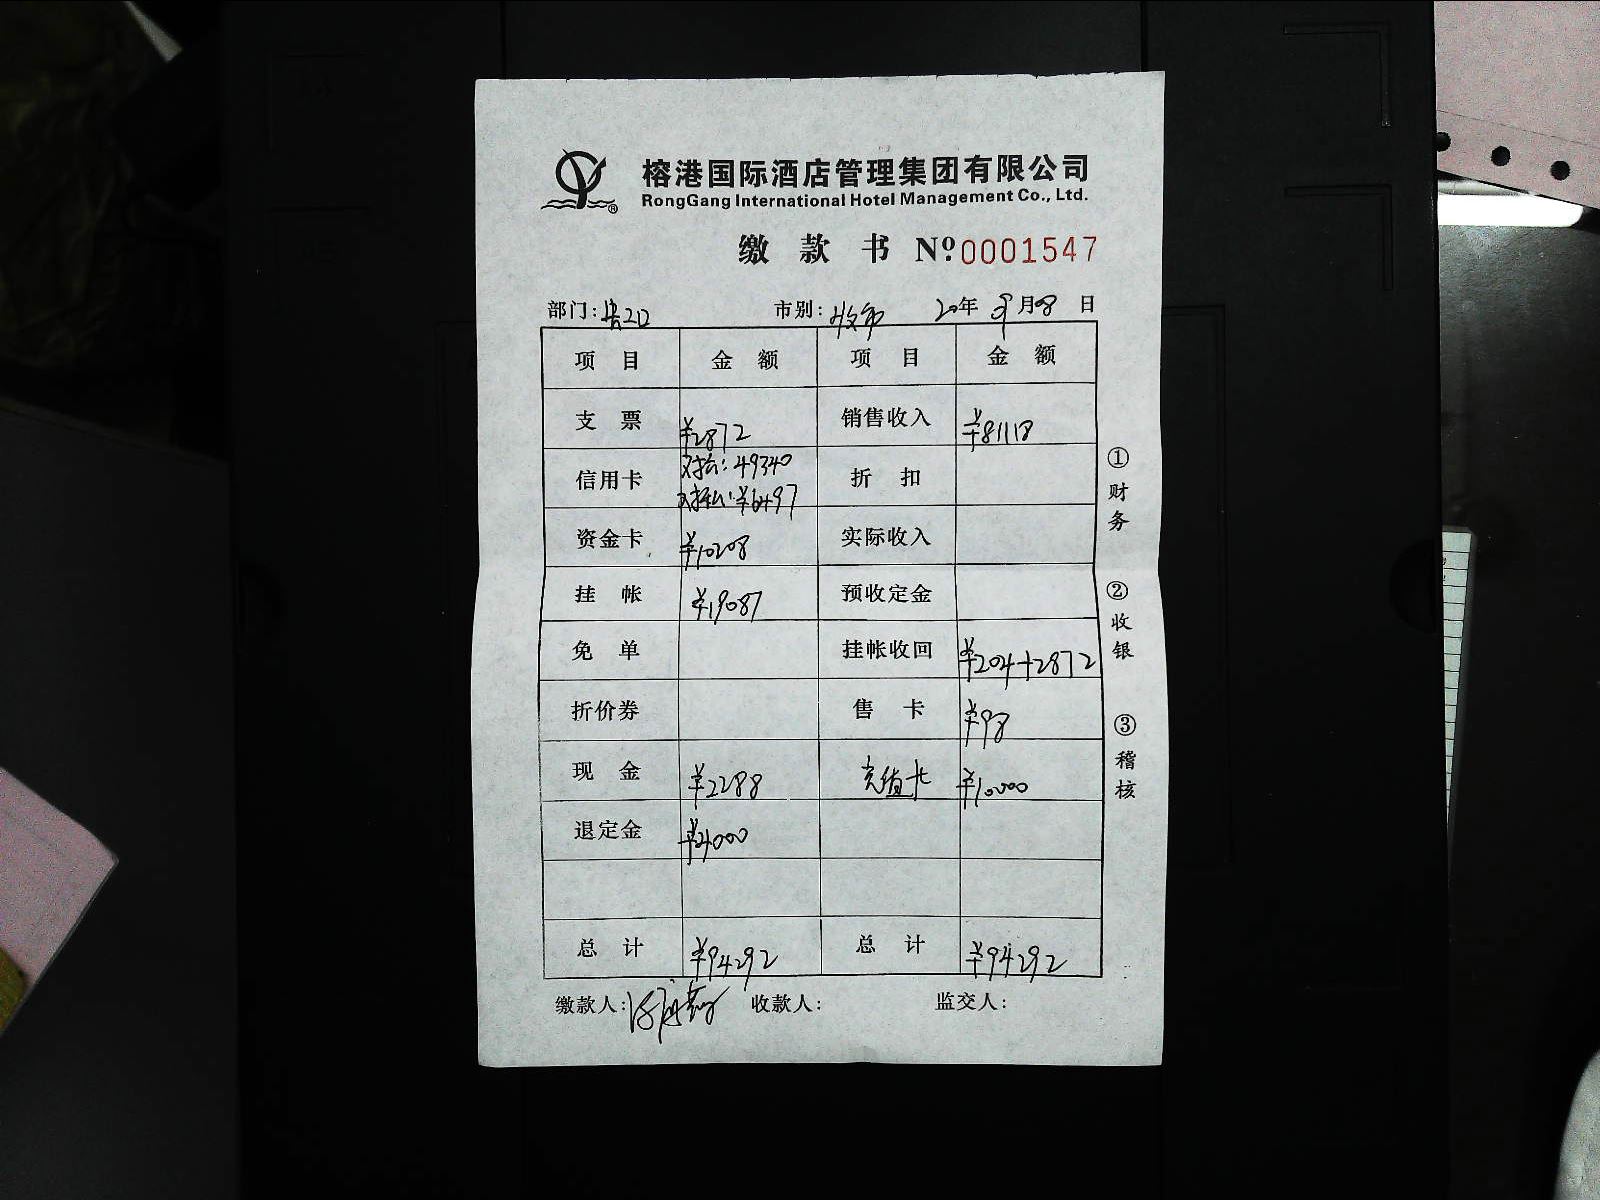 榕港国际酒店管理集团有限公司
RongGang International Hotel Management Co., Ltd.
缴款书 Nº 0001547
部门: 市别: 收市 20年 9月8日
项目 金额 项目 金额
支票 ¥2872 销售收入 ¥81118
信用卡 对公: 49340 折扣
对私: ¥6497
资金卡 ¥10208 实际收入
挂帐 ¥19087 预收定金
免单 挂帐收回 ¥204+2872
折价券 售卡 ¥98
现金 ¥2288 充值卡 ¥10000
退定金 ¥4000
总计 ¥94292 总计 ¥94292
缴款人: 收款人: 监交人:
①财务 ②收银 ③稽核